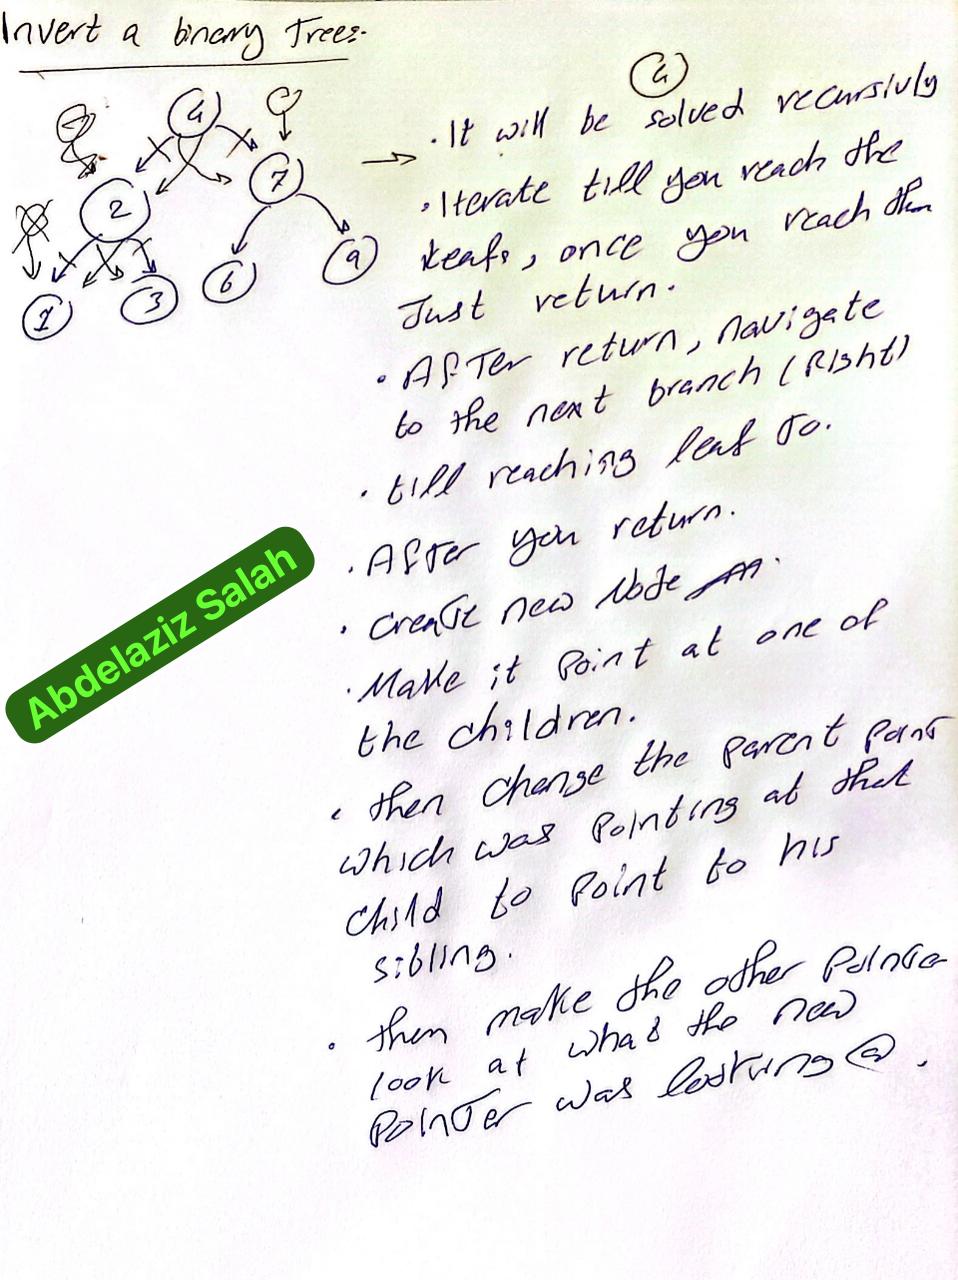 Invert a binary Trees.
4
4
2
7
1
3
6
9
. It will be solved recursivly
. Iterate till you reach the
leafs, once you reach them
Just return.
. After return, navigate
to the next branch (Right)
. till reaching leaf To.
. After you return.
. create new Node
. Make it Point at one of
the children.
. then change the parent point
which was pointing at that
child to point to his
sibling.
. then make the other pointer
look at what the new
pointer was looking @.
Abdelaziz Salah